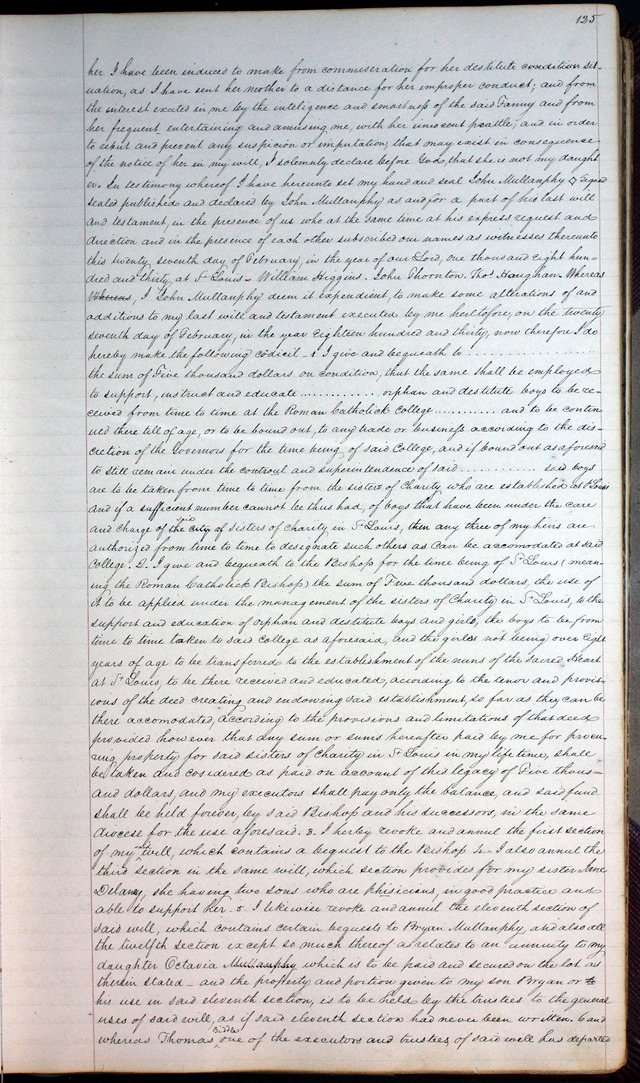 125
her I have been induced to make from commiseration for her destitute condition sit-
uation, as I have sent her mother to a distance for her improper conduct; and from
the interest excited in me by the inteligence and smartness of the said Fanny and from
her frequent entertaining and amusing me, with her innocent prattle; and in order
to rebut and prevent any suspicion or imputation, that may exist in consequence
of the notice of her in my will, I solemnly declare before God, that she is not my daught
er. In testimony whereof I have hereunto set my hand and seal John Mullanphy Signed
sealed published and declared by John Mullanphy as and for a part of his last will
and testament, in the presence of us who at the same time at his express request and
direction and in the presence of each other subscribed our names as witnesses thereunto
this twenty seventh day of February, in the year of our Lord, one thousand eight hun-
dred and thirty, at St Louis – William Higgins. John Thornton. Thos Haughan. Whereas
Whereas, I John Mullanphy deem it expendient, to make some alterations of and
additions to my last will and testament executed by me heiltofore, on the twenty
seventh day of February, in the year Eighteen hundred and thirty, now therefore I do
hereby make the following codicil – 1. I give and bequeath to ....................
the sum of Five thousand dollars on condition, that the same shall be employed
to support, instruct and educate ............ orphan and destitute boys to be re-
ceived from time to time at the Roman Catholick College ........... and to be contin
ued there till of age, or to be bound out, to any trade or business according to the dis-
cretion of the Governors for the time being of said College, and if bound out as aforesaid
to still remain under the controul and superintendence of said ............ said boys
are to be taken from time to time from the sisters of Charity who are established at St Louis
and if a sufficient number cannot be thus had, of boys that have been under the care
and charge of the City of said sisters of Charity in St Louis, then any three of my heirs are
authorized from time to time to designate such others as can be accomodated at said
College. 2. I give and bequeath to the Bishop for the time being of St Louis (mean-
ing the Roman Catholick Bishop) the sum of Five thousand dollars, the use of
it to be applied under the management of the sisters of Charity in St Louis, to the
support and education of orphan and destitute boys and girls, the boys to be from
time to time taken to said College as aforesaid, and the girls not being over Eight
years of age to be transferred to the establishment of the nuns of the Sacred Heart
at St Louis, to be there received and educated, aciording to the tenor and provis-
ions of the deed creating and endowing said establishment, so far as they can be
there accomodated, according to the provisions and limitations of that deed
provided however that any sum or sums hereafter paid by me for procu-
ring property for said sisters of Charity in St Louis in my life time, shall
be taken and cosidered as paid on account of this legacy of Five thous-
and dollars, and my executors shall pay only the balance, and said fund
shall be held forever, by said Bishop and his successors, in the same
diocese for the use aforesaid. 3. I herby revoke and annul the first section
of my will, which contains a bequest to the Bishop 4. I also annul the
third section in the same will, which section provides for my sister Jane
Delany, she having two sons who are phisicians, in good practice and
able to support her. 5. I likewise revoke and annul the eleventh section of
said will, which contains certain bequests to Bryan Mullanphy, and also all
the twelfth section except so much thereof as relates to an annuity to my
daughter Octavia Mullanphy which is to be paid and secured on the lot as
therein stated – and the property and portion given to my son Bryan or to
his use in said eleventh section, is to be held by the trustees to the general
uses of said will, as if said eleventh section had never been written. 6 and
whereas Thomas Biddle one of the executors and trustees of said will has departed